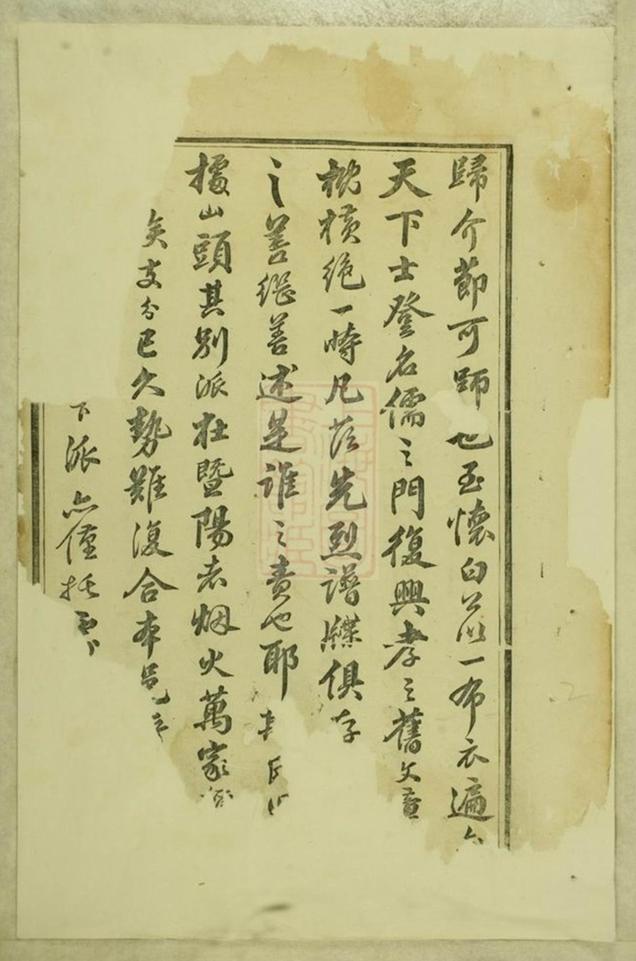 歸介節可師也至懷白公以一布衣遍
天下士登名儒之門復興孝之舊文
枕橫絕一時凡茲先烈譜牒俱存
之善繼善述是誰之責也耶
據山頭其別派在暨陽者烟火萬家
矣支分已久勢難復合本
下派亦僅